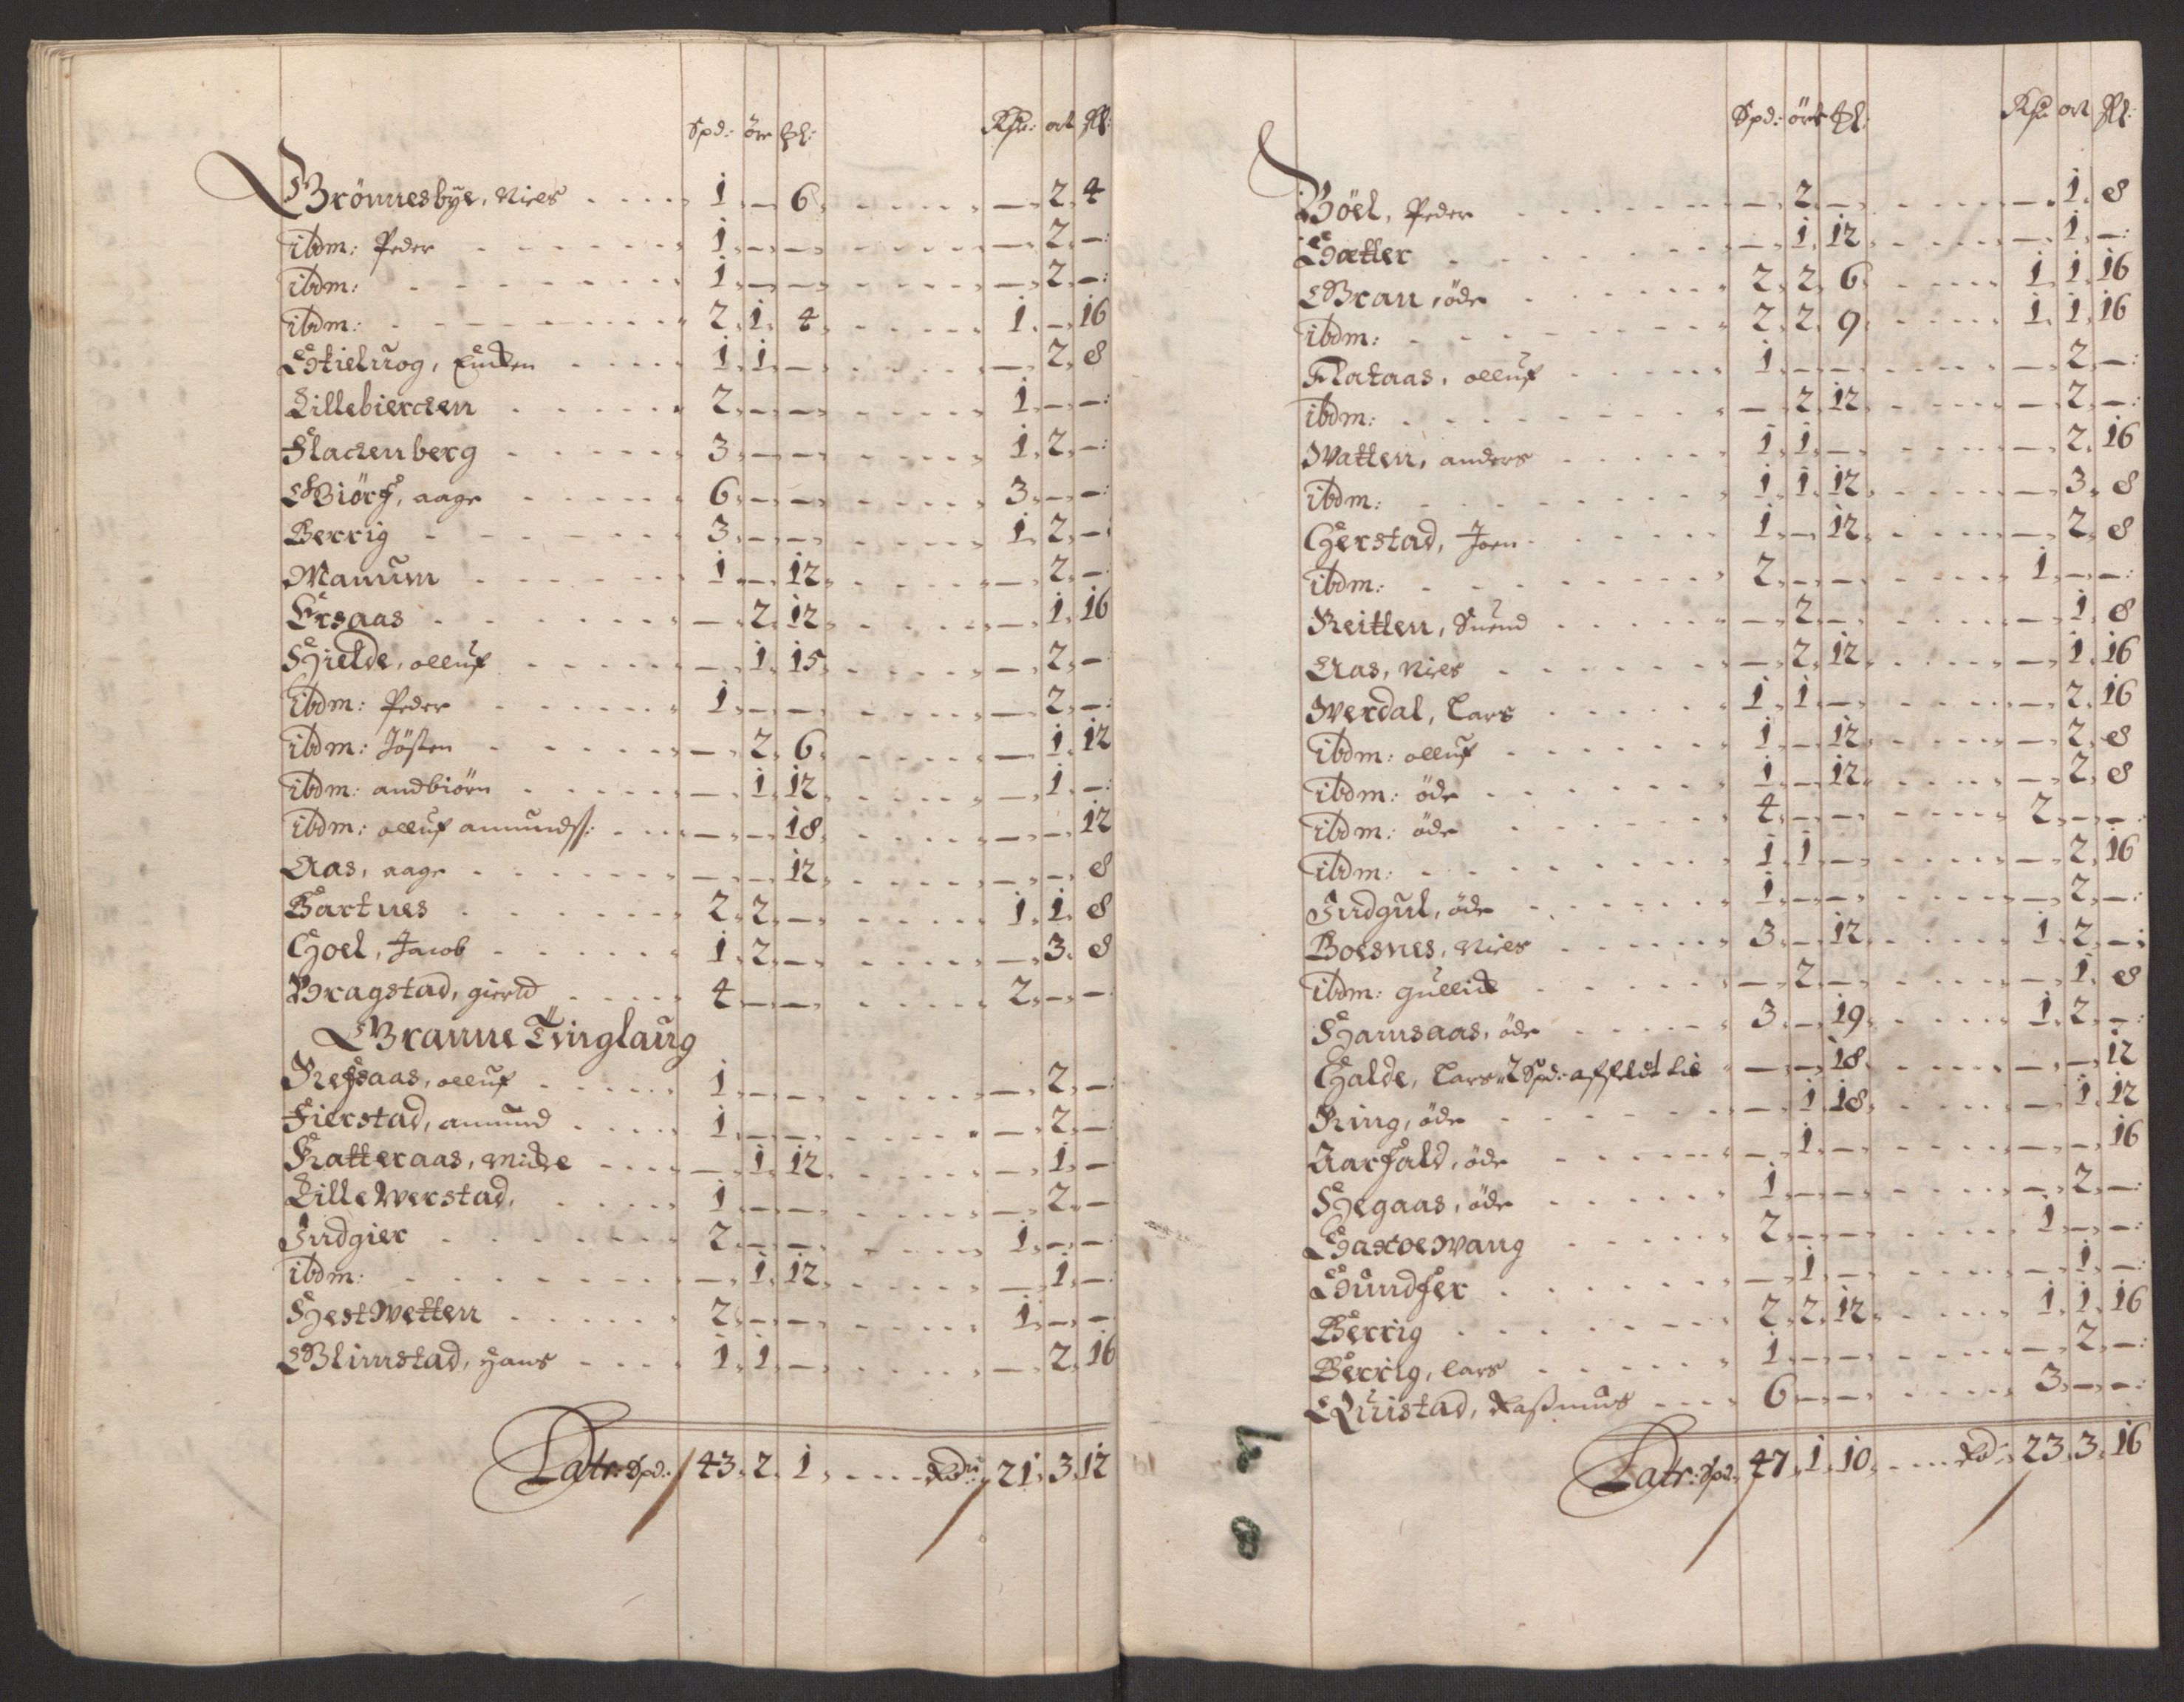 Spd: öre ₰: Rdr: ort ß:
Grönnesbye, Niels 1 – 6 – 2 4
ibdm: Peder 1 – – – 2 –
ibdm: 1 – – – 2 –
ibdm: 2 1 4 1 – 16
Skieluog, Enken 1 1 – – 2 8
Lillebiercken 2 – – 1 – –
Flackenberg 3 – – 1 2 –
Biörch, aage 6 – – 3 – –
Berrig 3 – – 1 2 –
Manum 1 – 12 – 2 –
Ersaas – 2 12 – 1 16
Hielde, olluf – 1 15 – 2 –
ibdm: Peder 1 – – – 2 –
ibdm: Jösten – 2 6 – 1 12
ibdm: andbiörn – 1 12 – 1 –
ibdm: olluf amundß: – – 18 – – 12
Aas, aage – – 12 – – 8
Bartnes 2 2 – 1 1 8
Hoel, Jacob 1 2 – – 3 8
Bragstad, 4 – – 2 – –
Granne Tinglaug
Refsaas, olluf 1 – – – 2 –
Fierstad, amund 1 – – – 2 –
Ratteraas, Micke – 1 12 – 1 –
Lille Werstad, 1 – – – 2 –
Indgier 2 – – 1 – –
ibdm: – 1 12 – 1 –
Hestwetten 2 – – 1 – –
Blimstad, Hans 1 1 – – 2 16
Latr: Spd: 43 2 1 Rdr 21 3 12
Spd: öre ₰: Rdr ort ß:
Böel, Peder – 2 – – 1 8
Hætter – 1 12 – 1 –
Gran, öde 2 2 6 1 1 16
ibdm: 2 2 9 1 1 16
Flataas, olluf 1 – – – 2 –
ibdm: – 2 12 – 2 –
Watten, anders 1 1 – – 2 16
ibdm: 1 1 12 – 3 8
Gerstad, Joen 1 – 12 – 2 8
ibdm: 2 – – 1 – –
Reitten, Suend – 2 – – 1 8
Aas, Niels – 2 12 – 1 16
Werdal, Lars 1 1 – – 2 16
ibdm: olluf 1 – 12 – 2 8
ibdm: öde 1 – 12 – 2 8
ibdm: öde 4 – – 2 – –
ibdm: 1 1 – – 2 16
Indgul, öde 1 – – – 2 –
Boesnes, Niels 3 – 12 1 2 –
ibdm: gullick – 2 – – 1 8
Hamsaas, öde 3 – 19 1 2 –
Halde, Lars 2 Spd: affeldt – – 18 – – 12
Ring, öde – 1 18 – 1 12
Aarfald, öde – 1 – – – 16
Hegaas, öde 1 – – – 2 –
2 – – 1 – –
Sundfer – 1 – – 1 –
Berrig 2 2 12 1 1 16
Berrig, Lars 1 – – – 2 –
Quistad, Raßmus 6 – – 3 – –
Latr: Spd: 47 1 10 Rd: 23 3 16